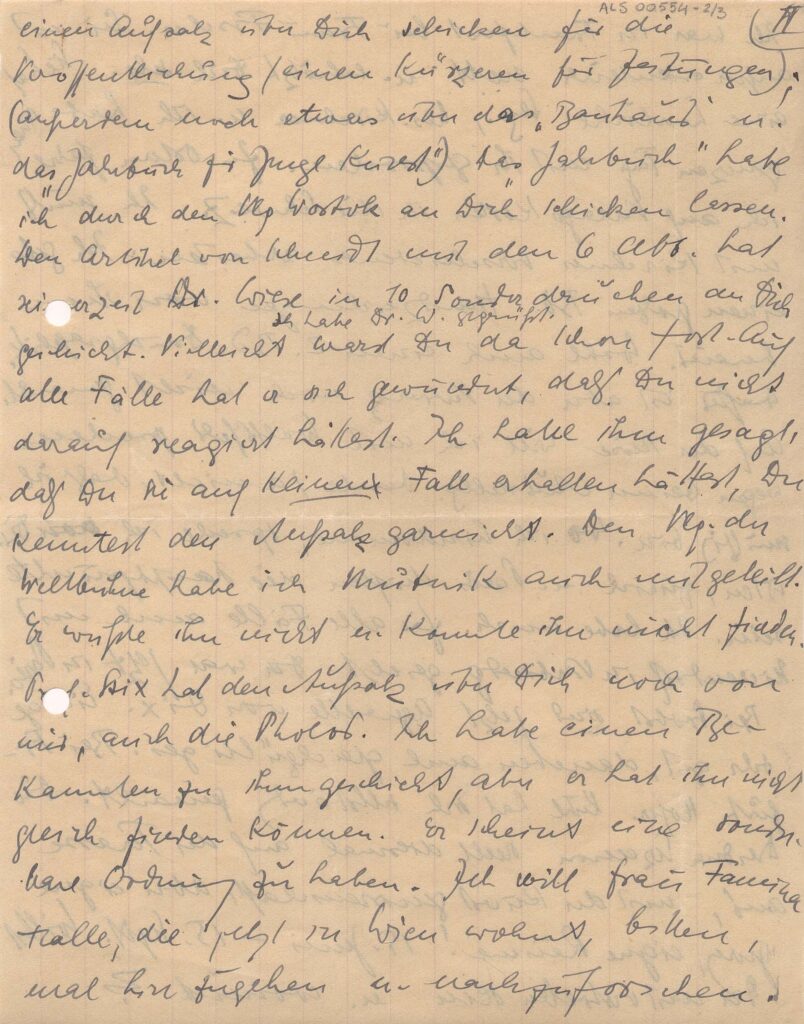 ALS 00554-2/3
II
einen Aufsatz über Dich schicken für die
Veröffentlichung (einen kürzeren für Zeitungen);
(außerdem noch etwas über das „Bauhaus" u.
das „Jahrbuch für junge Kunst") Das „Jahrbuch" habe
ich durch den Vlg Wostok an Dich schicken lassen.
Den Artikel von Schmidt mit den 6 Abb. hat
seinerzeit Dr. Wiese in 10 Sonderdrucken an Dich
ich habe Dr. W. gegrüßt.
geschickt. Vielleicht warst Du da schon fort. Auf
alle Fälle hat er sich gewundert, daß Du nicht
darauf reagiert hättest. Ich habe ihm gesagt,
daß Du sie auf keinen Fall erhalten hättest, Du
kenntest den Aufsatz garnicht. Den Vlg. der
Weltbühne habe ich Mutnik auch mitgeteilt.
Er wußte ihn nicht u. konnte ihn nicht finden.
Prof. Dix hat den Aufsatz über Dich noch von
mir, auch die Photos. Ich habe einen Be-
kannten zu ihm geschickt, aber er hat ihn nicht
gleich finden können. Er scheint eine sonder-
bare Ordnung zu haben. Ich will Frau Fannina
Halle, die jetzt in Wien wohnt, bitten,
mal hinzugehen u. nachzuforschen.